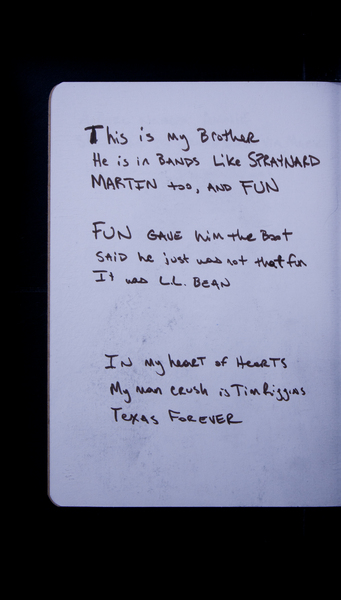 This is my Brother
He is in BANDS Like SPRAYNARD
MARTIN too, AND FUN
FUN GAVE him the Boot
SAID he just was not that fun
It was L.L. BEAN
IN my heart of HeARTS
My man crush is Tim Riggins
Texas FOREVER